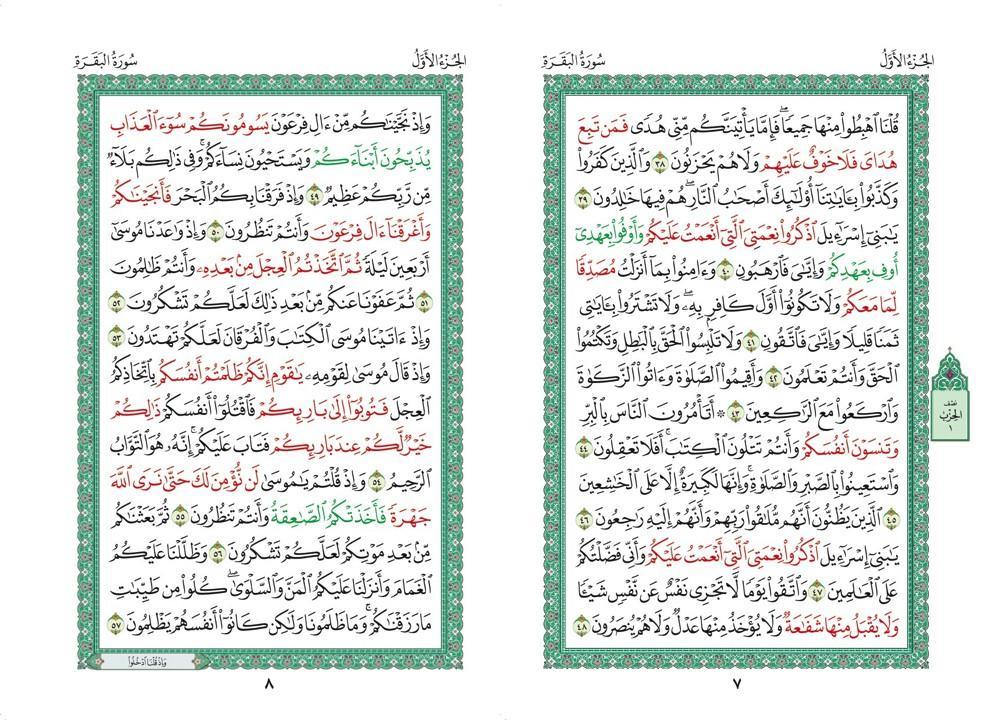 الجُزْءُ الأَوَّلُ
سُورَةُ البَقَرَةِ
قُلْنَا ٱهْبِطُوا۟ مِنْهَا جَمِيعًۭا ۖ فَإِمَّا يَأْتِيَنَّكُم مِّنِّى هُدًۭى فَمَن تَبِعَ
هُدَاىَ فَلَا خَوْفٌ عَلَيْهِمْ وَلَا هُمْ يَحْزَنُونَ ٣٨ وَٱلَّذِينَ كَفَرُوا۟
وَكَذَّبُوا۟ بِـَٔايَـٰتِنَآ أُو۟لَـٰٓئِكَ أَصْحَـٰبُ ٱلنَّارِ ۖ هُمْ فِيهَا خَـٰلِدُونَ ٣٩
يَـٰبَنِىٓ إِسْرَٰٓءِيلَ ٱذْكُرُوا۟ نِعْمَتِىَ ٱلَّتِىٓ أَنْعَمْتُ عَلَيْكُمْ وَأَوْفُوا۟ بِعَهْدِىٓ
أُوفِ بِعَهْدِكُمْ وَإِيَّـٰىَ فَٱرْهَبُونِ ٤٠ وَءَامِنُوا۟ بِمَآ أَنزَلْتُ مُصَدِّقًۭا
لِّمَا مَعَكُمْ وَلَا تَكُونُوٓا۟ أَوَّلَ كَافِرٍۭ بِهِۦ ۖ وَلَا تَشْتَرُوا۟ بِـَٔايَـٰتِى
ثَمَنًۭا قَلِيلًۭا وَإِيَّـٰىَ فَٱتَّقُونِ ٤١ وَلَا تَلْبِسُوا۟ ٱلْحَقَّ بِٱلْبَـٰطِلِ وَتَكْتُمُوا۟
ٱلْحَقَّ وَأَنتُمْ تَعْلَمُونَ ٤٢ وَأَقِيمُوا۟ ٱلصَّلَوٰةَ وَءَاتُوا۟ ٱلزَّكَوٰةَ
وَٱرْكَعُوا۟ مَعَ ٱلرَّٰكِعِينَ ٤٣ ۞ أَتَأْمُرُونَ ٱلنَّاسَ بِٱلْبِرِّ
وَتَنسَوْنَ أَنفُسَكُمْ وَأَنتُمْ تَتْلُونَ ٱلْكِتَـٰبَ ۚ أَفَلَا تَعْقِلُونَ ٤٤
وَٱسْتَعِينُوا۟ بِٱلصَّبْرِ وَٱلصَّلَوٰةِ ۚ وَإِنَّهَا لَكَبِيرَةٌ إِلَّا عَلَى ٱلْخَـٰشِعِينَ
٤٥ ٱلَّذِينَ يَظُنُّونَ أَنَّهُم مُّلَـٰقُوا۟ رَبِّهِمْ وَأَنَّهُمْ إِلَيْهِ رَٰجِعُونَ ٤٦
يَـٰبَنِىٓ إِسْرَٰٓءِيلَ ٱذْكُرُوا۟ نِعْمَتِىَ ٱلَّتِىٓ أَنْعَمْتُ عَلَيْكُمْ وَأَنِّى فَضَّلْتُكُمْ
عَلَى ٱلْعَـٰلَمِينَ ٤٧ وَٱتَّقُوا۟ يَوْمًۭا لَّا تَجْزِى نَفْسٌ عَن نَّفْسٍۢ شَيْـًۭٔا
وَلَا يُقْبَلُ مِنْهَا شَفَـٰعَةٌۭ وَلَا يُؤْخَذُ مِنْهَا عَدْلٌۭ وَلَا هُمْ يُنصَرُونَ ٤٨
نصف
الحزب
١
٧
الجُزْءُ الأَوَّلُ
سُورَةُ البَقَرَةِ
وَإِذْ نَجَّيْنَـٰكُم مِّنْ ءَالِ فِرْعَوْنَ يَسُومُونَكُمْ سُوٓءَ ٱلْعَذَابِ
يُذَبِّحُونَ أَبْنَآءَكُمْ وَيَسْتَحْيُونَ نِسَآءَكُمْ ۚ وَفِى ذَٰلِكُم بَلَآءٌۭ
مِّن رَّبِّكُمْ عَظِيمٌۭ ٤٩ وَإِذْ فَرَقْنَا بِكُمُ ٱلْبَحْرَ فَأَنجَيْنَـٰكُمْ
وَأَغْرَقْنَآ ءَالَ فِرْعَوْنَ وَأَنتُمْ تَنظُرُونَ ٥٠ وَإِذْ وَٰعَدْنَا مُوسَىٰٓ
أَرْبَعِينَ لَيْلَةًۭ ثُمَّ ٱتَّخَذْتُمُ ٱلْعِجْلَ مِنۢ بَعْدِهِۦ وَأَنتُمْ ظَـٰلِمُونَ
٥١ ثُمَّ عَفَوْنَا عَنكُم مِّنۢ بَعْدِ ذَٰلِكَ لَعَلَّكُمْ تَشْكُرُونَ ٥٢
وَإِذْ ءَاتَيْنَا مُوسَى ٱلْكِتَـٰبَ وَٱلْفُرْقَانَ لَعَلَّكُمْ تَهْتَدُونَ ٥٣
وَإِذْ قَالَ مُوسَىٰ لِقَوْمِهِۦ يَـٰقَوْمِ إِنَّكُمْ ظَلَمْتُمْ أَنفُسَكُم بِٱتِّخَاذِكُمُ
ٱلْعِجْلَ فَتُوبُوٓا۟ إِلَىٰ بَارِئِكُمْ فَٱقْتُلُوٓا۟ أَنفُسَكُمْ ذَٰلِكُمْ
خَيْرٌۭ لَّكُمْ عِندَ بَارِئِكُمْ فَتَابَ عَلَيْكُمْ ۚ إِنَّهُۥ هُوَ ٱلتَّوَّابُ
ٱلرَّحِيمُ ٥٤ وَإِذْ قُلْتُمْ يَـٰمُوسَىٰ لَن نُّؤْمِنَ لَكَ حَتَّىٰ نَرَى ٱللَّهَ
جَهْرَةًۭ فَأَخَذَتْكُمُ ٱلصَّـٰعِقَةُ وَأَنتُمْ تَنظُرُونَ ٥٥ ثُمَّ بَعَثْنَـٰكُم
مِّنۢ بَعْدِ مَوْتِكُمْ لَعَلَّكُمْ تَشْكُرُونَ ٥٦ وَظَلَّلْنَا عَلَيْكُمُ
ٱلْغَمَامَ وَأَنزَلْنَا عَلَيْكُمُ ٱلْمَنَّ وَٱلسَّلْوَىٰ ۖ كُلُوا۟ مِن طَيِّبَـٰتِ
مَا رَزَقْنَـٰكُمْ ۖ وَمَا ظَلَمُونَا وَلَـٰكِن كَانُوٓا۟ أَنفُسَهُمْ يَظْلِمُونَ ٥٧
وَإِذْ قُلْنَا ٱدْخُلُوا۟
٨